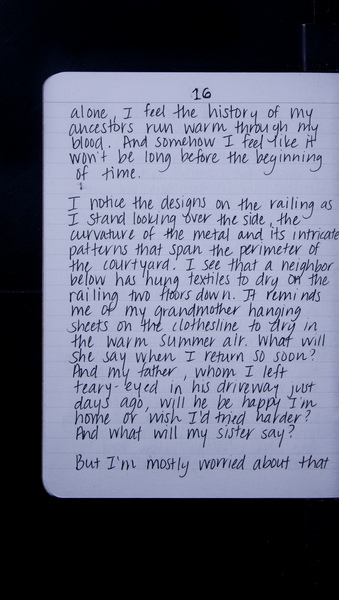 16
alone, I feel the history of my
ancestors run warm through my
blood. And somehow I feel like it
won't be long before the beginning
of time.
I notice the designs on the railing as
I stand looking over the side, the
curvature of the metal and its intricate
patterns that span the perimeter of
the courtyard. I see that a neighbor
below has hung textiles to dry on the
railing two floors down. It reminds
me of my grandmother hanging
sheets on the clothesline to dry in
the warm summer air. What will
she say when I return so soon?
And my father, whom I left
teary-eyed in his driveway just
days ago, will he be happy I'm
home or wish I'd tried harder?
And what will my sister say?
But I'm mostly worried about that